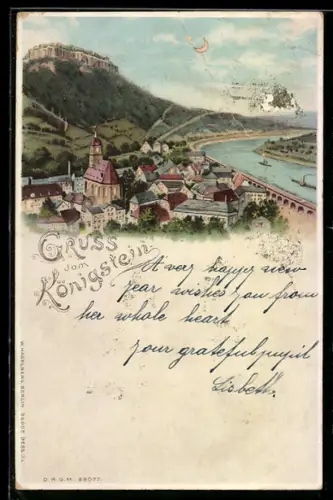 Gruss
vom
Königstein.
A very happy new
year wishes you from
her whole heart
your grateful pupil
Lisbeth.
W. HAGELBERG, BERLIN
D.R.G.M. 88077.